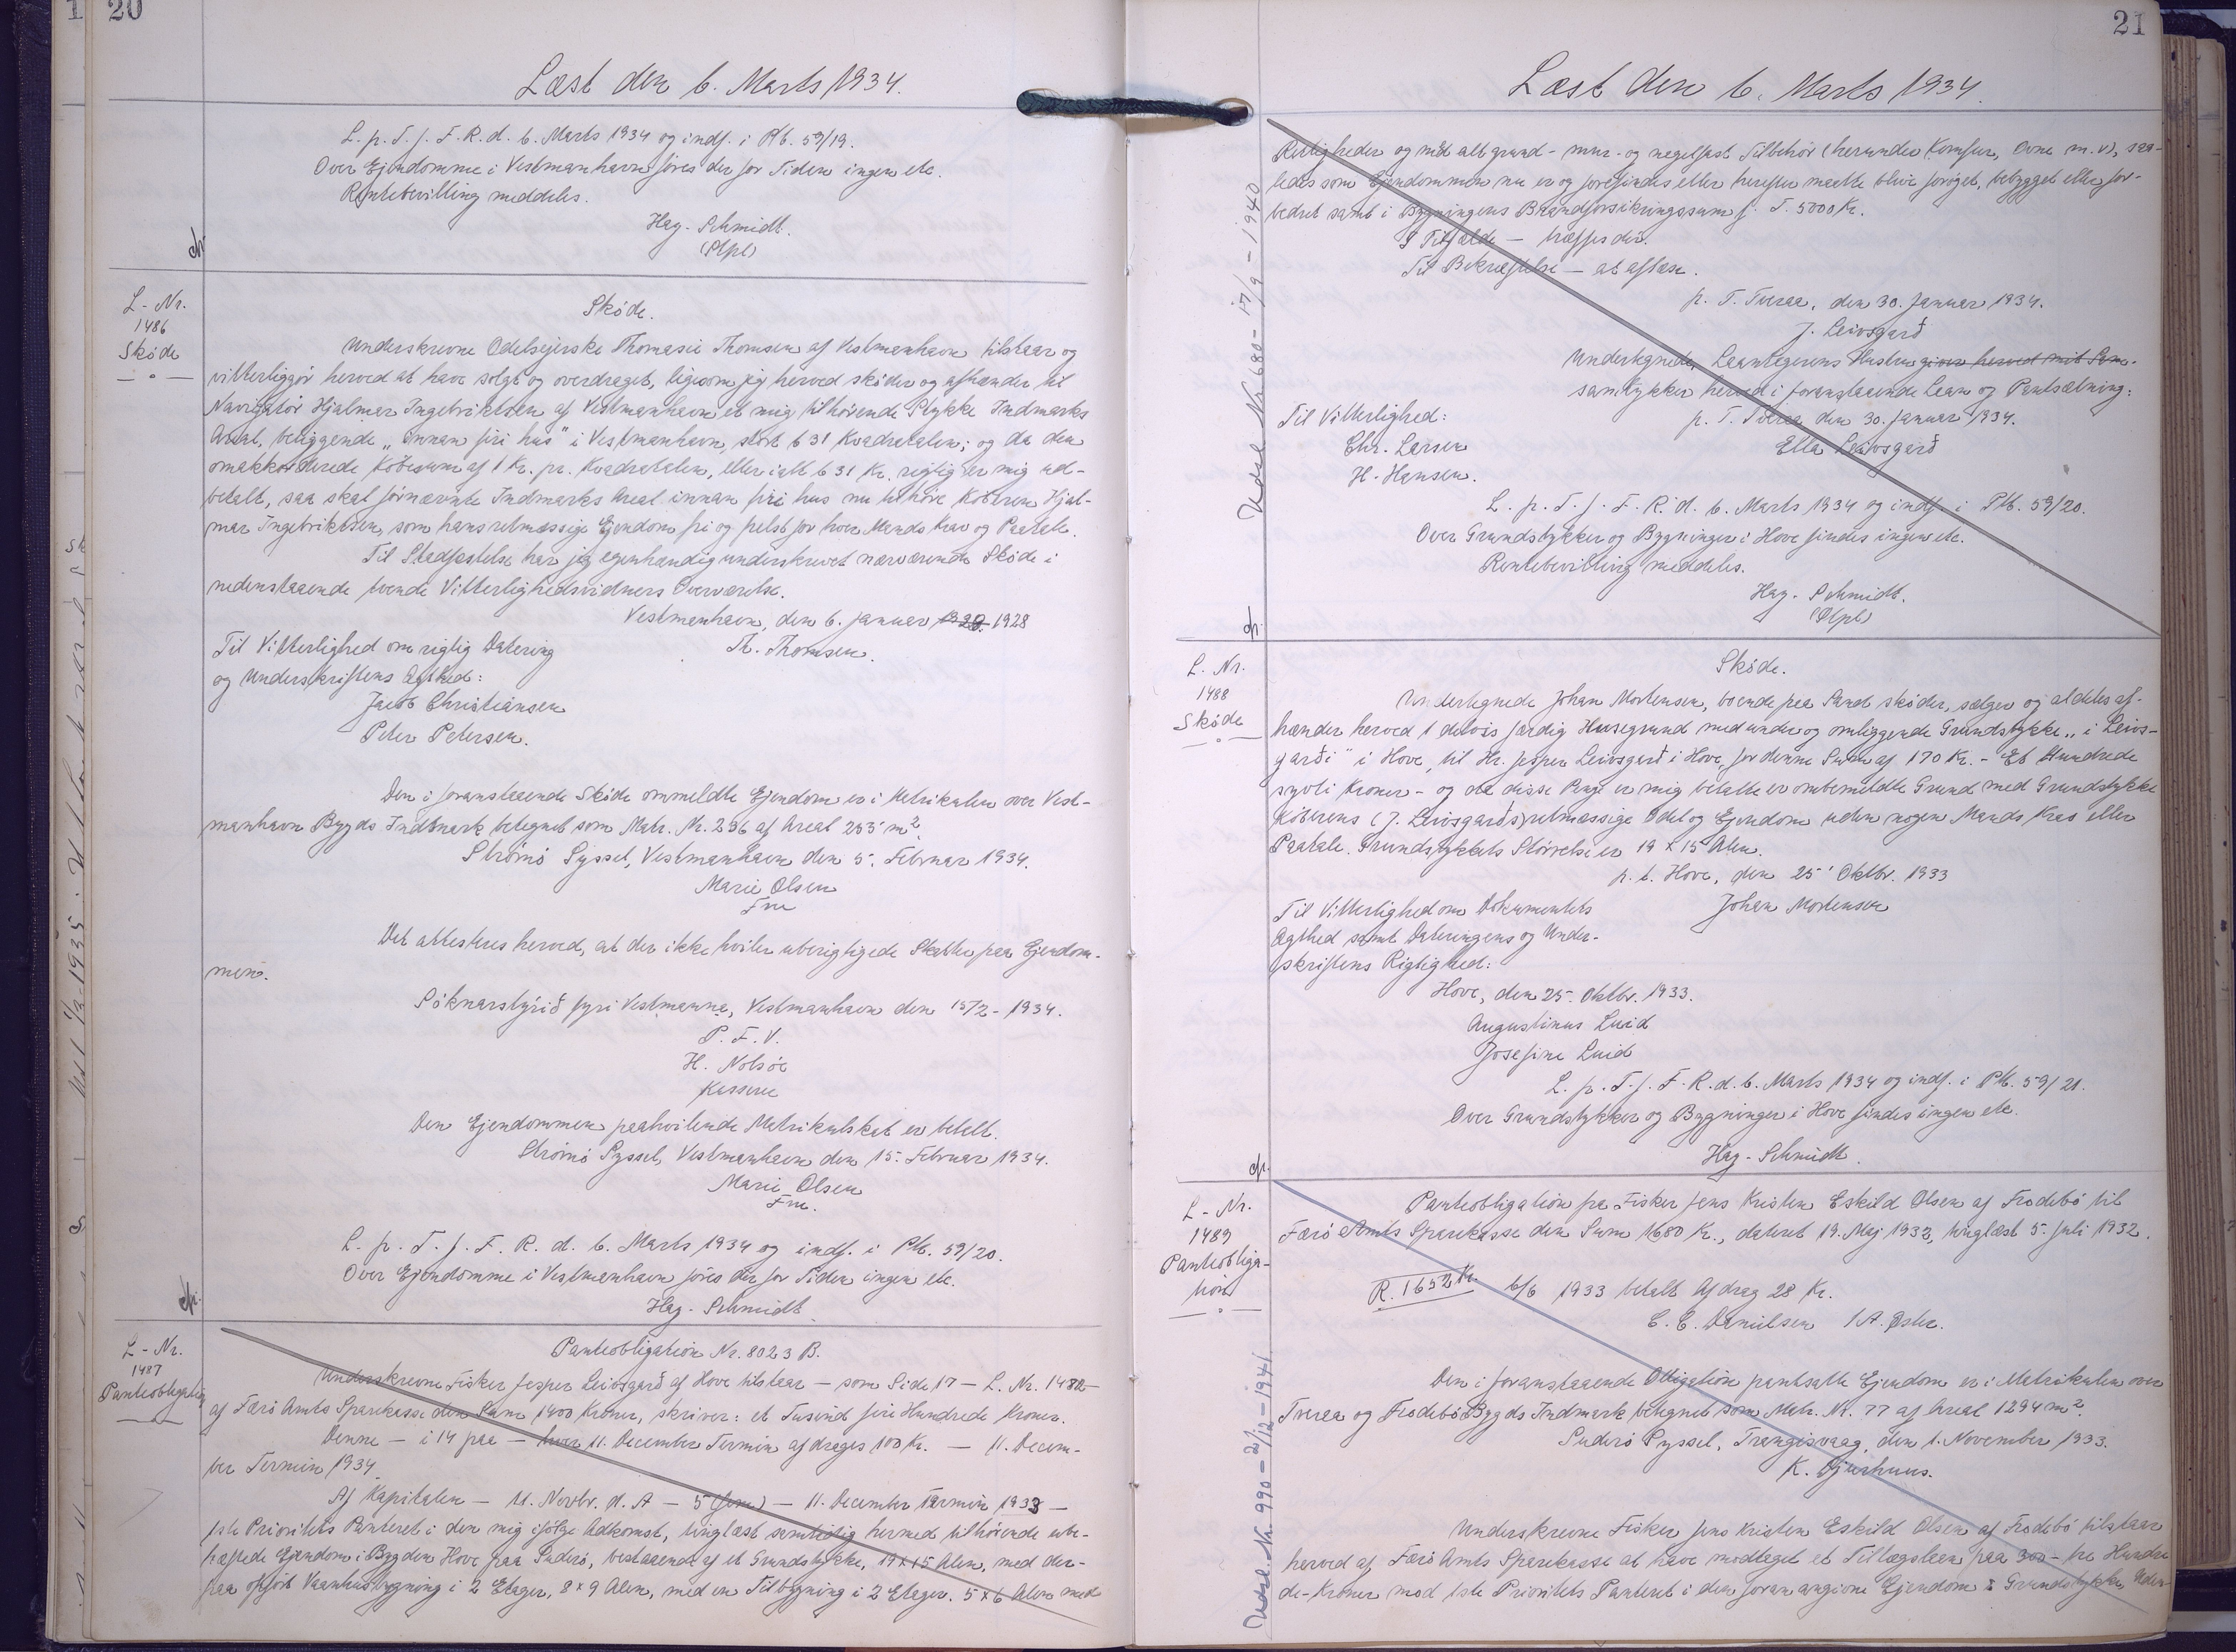 20
Læst den 6. Marts 1934.
L. p. T. f. F. R. d. 6. Marts 1934 og indf. i Ptb. 59/19.
Over Ejendomme i Vestmanhavn föres der for Tiden ingen etc.
Rentebevilling meddeles.
Hag. Schmidt.
L-Nr.
1486
Sköde
Sköde.
Underskrevne Odelsejerske Thomasie Thomsen af Vestmanhavn tilstaar og
vitterliggör herved at have solgt og overdraget, ligesom jeg herved sköder og afhænder til
Navigatör Hjalmar Ingebriktsen af Vestmanhavn et mig tilhörende Stykke Indmarks
Areal, beliggende „innan firi hus" i Vestmanhavn, stort 631 Kvadratalen; og da den
omakkorderede Köbesum af 1 Kr. pr. Kvadratalen, eller ialt 631 Kr. rigtig er mig ud-
betalt, saa skal förnævnte Indmarks Areal innan firi hus nu tilhöre Köberen Hjal-
mar Ingebriktsen, som hans retmæssige Ejendom fri og frelst for hver Mands Krav og Paatale.
Til Stadfæstelse har jeg egenhændig underskrevet nærværende Sköde i
nedenstaaende tvende Vitterlighedsvidners Overværelse.
Vestmanhavn, den 6. Januar 1928
Til Vitterlighed om rigtig Datering
Th. Thomsen.
og Underskriftens Ægthed:
Jacob Christiansen
Peter Petersen.
Den i foranstaaende Sköde ommeldte Ejendom er i Matrikulen over Vest-
manhavn Bygds Indmark betegnet som Matr. Nr. 236 af Areal 253 m².
Strömö Syssel, Vestmanhavn den 5. Februar 1934.
Marie Olsen
Fm
Det attesteres herved, at der ikke hviler uberigtigede Skatter paa Ejendom-
men.
Sóknarstýrið fyri Vestmanna, Vestmanhavn den 15/2-1934.
P. F. V.
H. Nolsöe
Kasserer
Den Ejendommen paahvilende Matrikulskat er betalt.
Strömö Syssel, Vestmanhavn den 15. Februar 1934.
Marie Olsen
Fm.
L. p. T. f. F. R. d. 6. Marts 1934 og indf. i Ptb. 59/20.
Over Ejendomme i Vestmanhavn föres der for Tiden ingen etc.
Hag. Schmidt
L-Nr.
1487
Panteobligation
Panteobligation Nr. 8023 B.
Underskrevne Fisker Jesper Leivsgarð af Hove tilstaar — som Side 17 — L. Nr. 1482 —
af Færö Amts Sparekasse den Sum 1400 Kroner, skriver: et Tusind fire Hundrede Kroner.
Denne — i 14 paa — hver 11. December Termin afdrages 100 Kr. — 11. Decem-
ber Termin 1934
Af Kapitalen — 11. Novbr. d. A — 5 (fem) — 11. December Termin 1933 —
1ste Prioritets Panteret i den mig ifölge Adkomst, tinglæst samtidig hermed tilhörende ube-
hæftede Ejendom i Bygden Hove paa Suderö, bestaaende af et Grundstykke, 19 x 15 Alen, med der-
paa opfört Vaanhusbygning i 2 Etager, 8 x 9 Alen, med en Tilbygning i 2 Etager. 5 x 6 Alen med
21
Læst den 6. Marts 1934.
Rettigheder og med alt grund- mur- og nagelfast Tilbehör (herunder Komfur, Ovne m. v), saa-
ledes som Ejendommen nu er og forefindes eller herefter maatte blive foröget, bebygget eller for-
bedret samt i Bygningens Brandforsikringssum f. T. 5000 Kr.
I Tilfælde — træffes der.
Til Bekræftelse — at aflæse.
p. T. Tveraa, den 30. Januar 1934.
J. Leivsgarð
Undertegnede, Laantagerens Hustru giver herved mit Sam-
samtykker herved i foranstaaende Laan og Pantsætning:
Til Vitterlighed:
p. T. Tveraa den 30. Januar 1934.
Chr. Larsen
Ella Leivsgarð
H. Hansen.
L. p. T. f. F. R. d. 6. Marts 1934 og indf. i Ptb. 59/20.
Over Grundstykker og Bygninger i Hove findes ingen etc.
Rentebevilling meddeles.
Hag. Schmidt.
Udsl. Nr. 680 - 17/9 - 1940
L. Nr.
1488
Sköde
Sköde.
Undertegnede Johan Mortensen, boende paa Sand sköder, sælger og aldeles af-
hænder herved 1 delvis færdig Husegrund med under og omliggende Grundstykke „i Leivs-
garði" i Hove, til Hr. Jesper Leivsgarð i Hove, for denne Sum af 170 Kr. - Et Hundrede
syvti Kroner - og da disse Penge er mig betalte er ombemeldte Grund med Grundstykke
Köberens (J. Leivsgarðs) retmæssige Odel og Ejendom uden nogen Mands Krav eller
Paatale. Grundstykkets Störrelse er 19 x 15 Alen.
p. t. Hove, den 25' Oktbr. 1933
Til Vitterlighed om Dokumentets
Johan Mortensen
Ægthed samt Dateringens og Under-
skriftens Rigtighed:
Hove, den 25. Oktbr. 1933.
Augustinus Luid
Josefine Luid
L. p. T. f. F. R. d. 6. Marts 1934 og indf. i Ptb. 59/21.
Over Grundstykker og Bygninger i Hove findes ingen etc.
Hag. Schmidt.
L-Nr.
1489
Panteobliga-
tion
Panteobligation fra Fisker Jens Kristen Eskild Olsen af Frodebö til
Færö Amts Sparekasse den Sum 1680 Kr., dateret 19. Maj 1932, tinglæst 5. Juli 1932.
R. 1652 Kr. 6/6 1933 betalt Afdrag 28 Kr.
C. C. Danielsen /A. Öster.
Den i foranstaaende Obligation pantsatte Ejendom er i Matrikulen over
Tveraa og Frodebö Bygds Indmark betegnet som Matr. Nr. 77 af Areal 1294 m².
Suderö Syssel, Trangisvaag, den 1. November 1933.
K. Djurhuus.
Underskrevne Fisker Jens Kristen Eskild Olsen af Frodebö tilstaar
herved af Færö Amts Sparekasse at have modtaget et Tillægslaan paa 300 - tre Hundre
de - Kroner mod 1ste Prioritets Panteret i den foran angivne Ejendom
Udsl. Nr. 990 - 21/12 - 1941